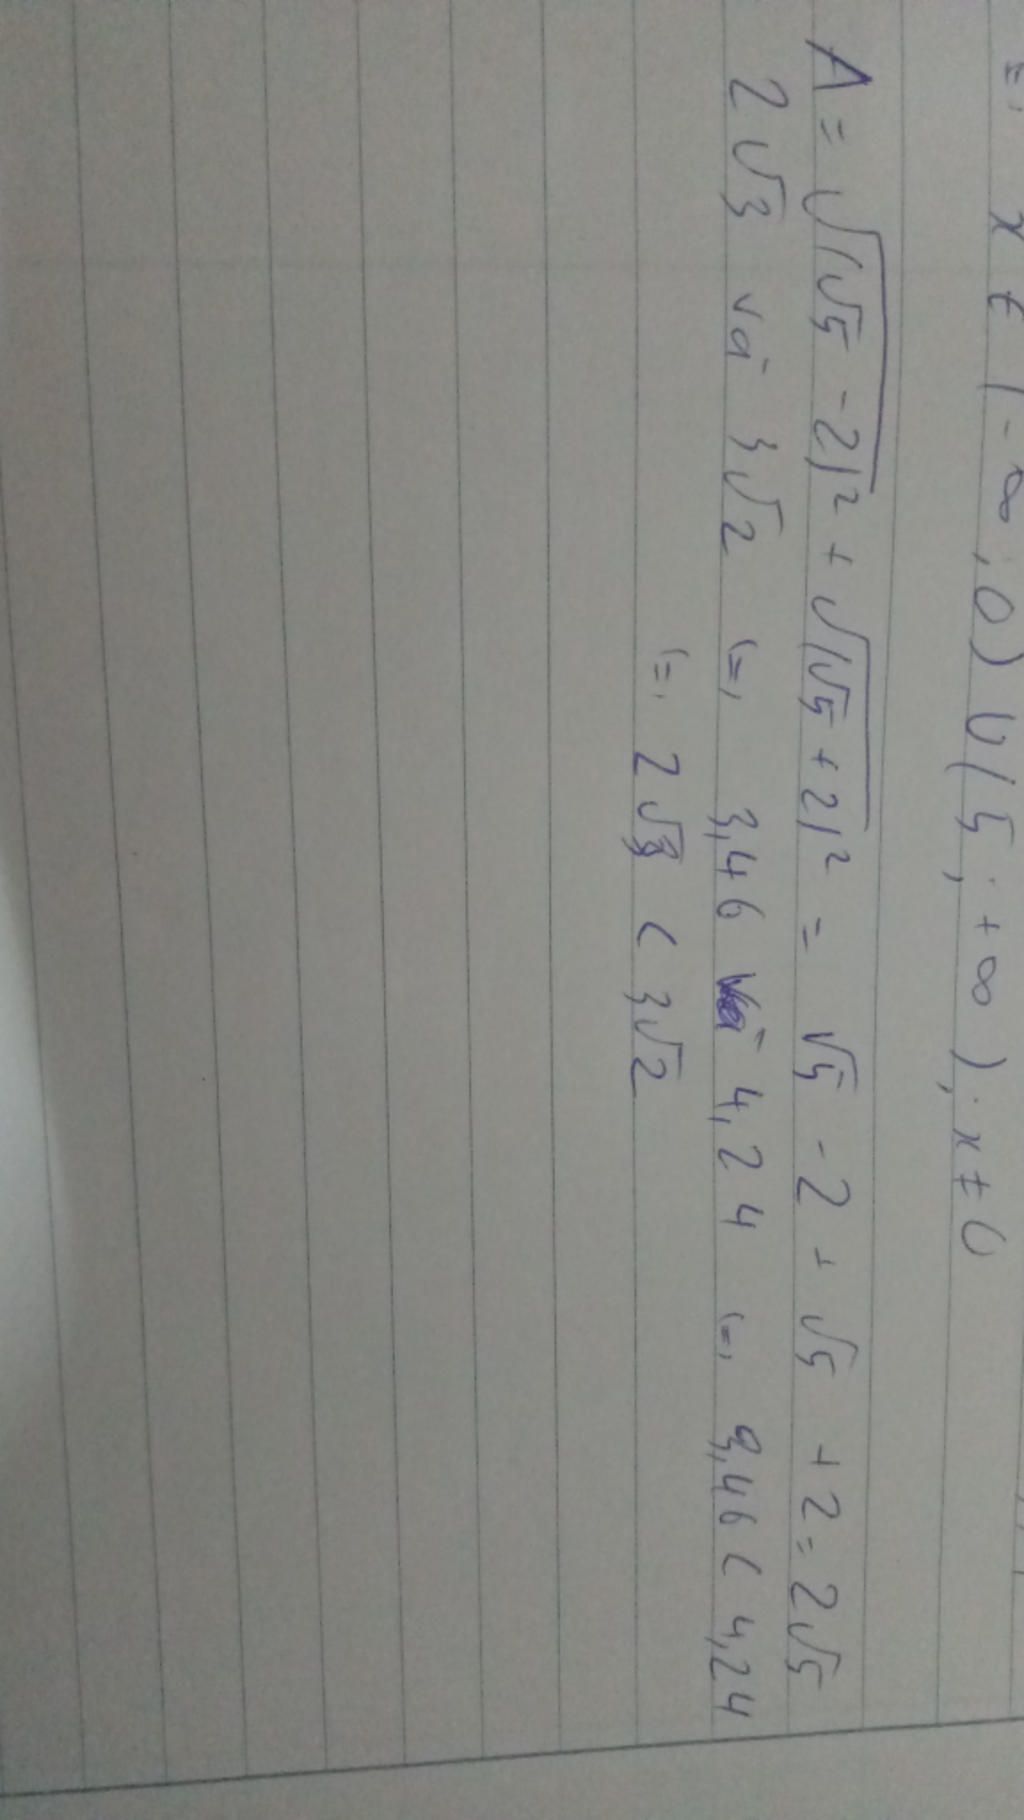 x ∈ (-∞; 0) ∪ (5; +∞); x ≠ 0
A = √(√5 - 2)² + √(√5 + 2)² = √5 - 2 + √5 + 2 = 2√5
2√3 và 3√2 (=, 3,46 và 4,24 (=, 3,46 < 4,24
(=, 2√3 < 3√2